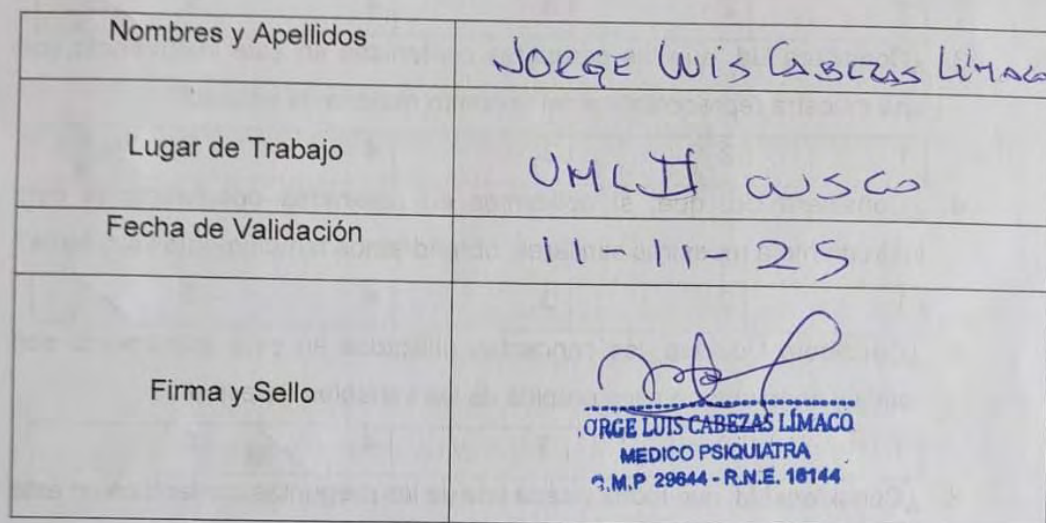 Nombres y Apellidos
JORGE LUIS CABEZAS LÍMACO
Lugar de Trabajo
UML II CUSCO
Fecha de Validación
11-11-25
Firma y Sello
ORGE LUIS CABEZAS LÍMACO
MEDICO PSIQUIATRA
C.M.P 29644 - R.N.E. 16144